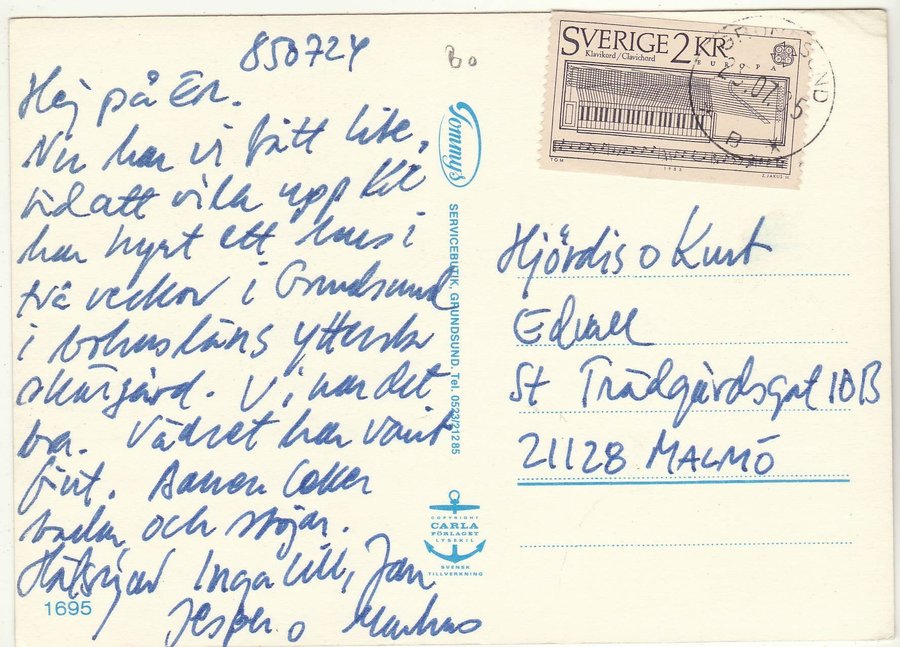 850724
Hej på Er.
Nu har vi fått lite
tid att vila upp
har hyrt ett hus i
två veckor i Grundsund
i bohusläns yttersta
skärgård. Vi har det
bra. Vädret har varit
fint. Barnen leker
badar och stojar.
Hälsningar Inga Lill, Jan
Jesper o Markus
1695
Bo
Tommys
SERVICEBUTIK, GRUNDSUND. Tel. 0523/21285
COPYRIGHT
CARLA
FÖRLAGET
LYSEKIL
SVENSK
TILLVERKNING
SVERIGE 2 KR
Klavikord / Clavichord
EUROPA
TGM
1985
Z. JAKUS SC
GRUNDSUND
B
Hjördis o Kurt
Edvall
St Trädgårdsgat 10B
21128 MALMÖ